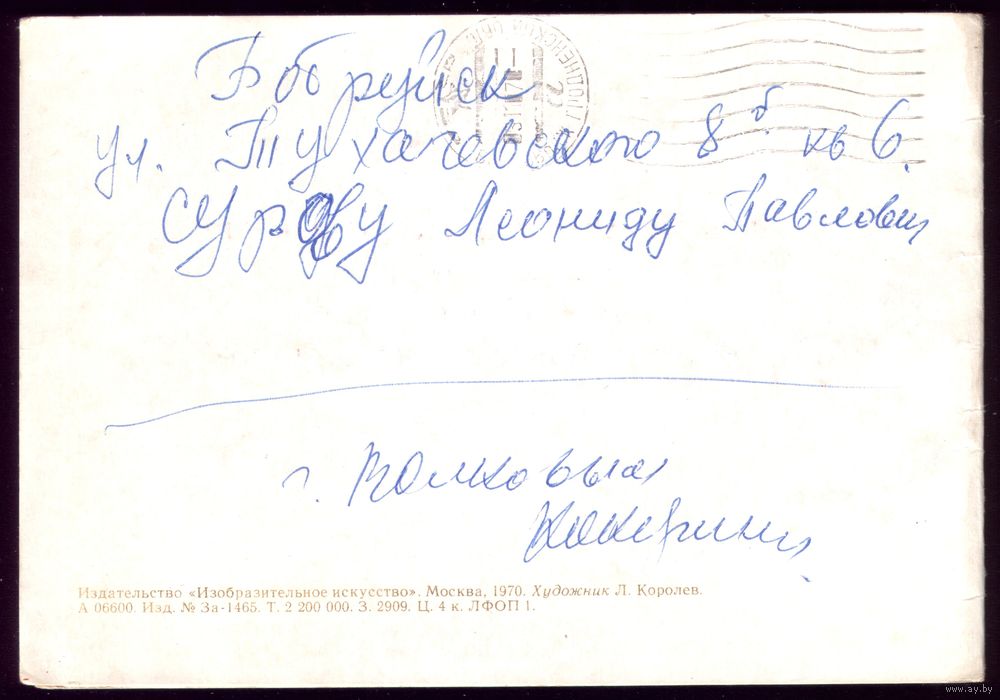 Бобруйск
ул. Тухачевского 8 б кв 6.
Леониду Павлович
г. Волковыск
Издательство «Изобразительное искусство». Москва, 1970. Художник Л. Королев.
А 06600. Изд. № 3а-1465. Т. 2 200 000. З. 2909. Ц. 4 к. ЛФОП 1.
www.ay.by